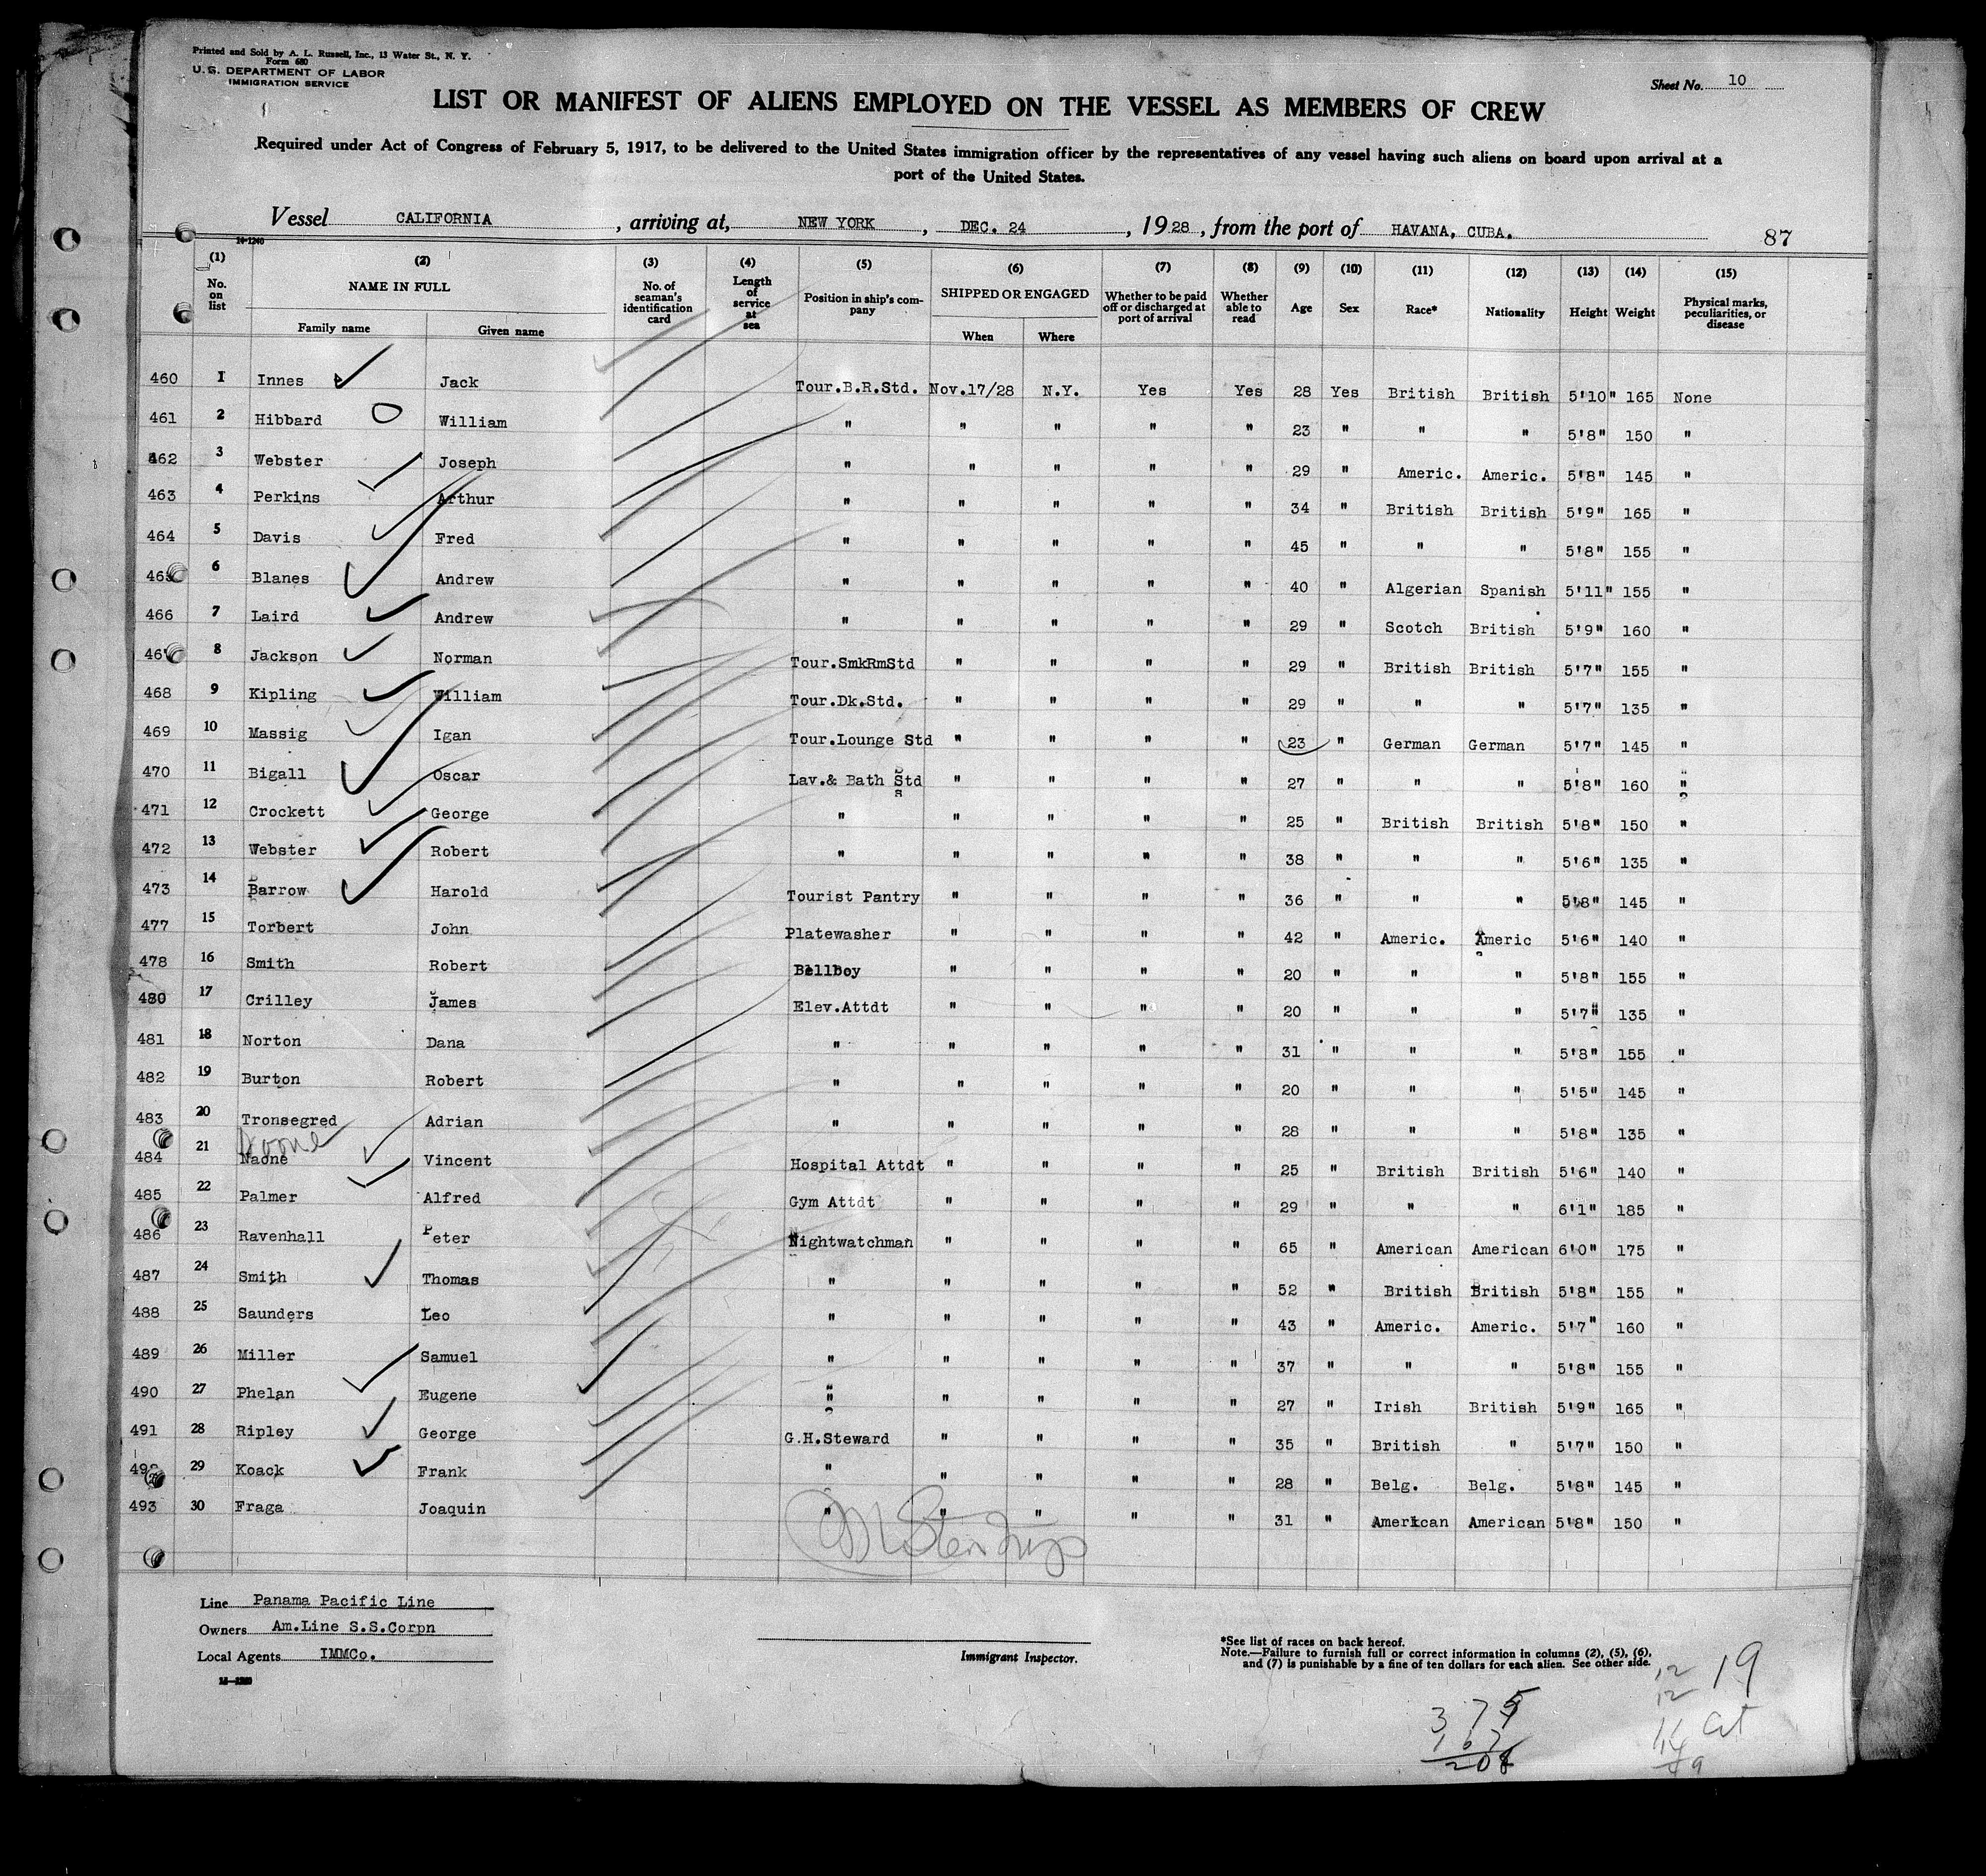 Printed and Sold by A. L. Russell, Inc., 13 Water St., N. Y.
Form 680
U. S. DEPARTMENT OF LABOR
IMMIGRATION SERVICE
Sheet No. 10
LIST OR MANIFEST OF ALIENS EMPLOYED ON THE VESSEL AS MEMBERS OF CREW
Required under Act of Congress of February 5, 1917, to be delivered to the United States immigration officer by the representatives of any vessel having such aliens on board upon arrival at a
port of the United States.
Vessel CALIFORNIA, arriving at, NEW YORK, DEC. 24, 1928, from the port of HAVANA, CUBA.
87
14-1240
(1) (2) (3) (4) (5) (6) (7) (8) (9) (10) (11) (12) (13) (14) (15)
No. on list NAME IN FULL Family name Given name No. of seaman's identification card Length of service at sea Position in ship's company SHIPPED OR ENGAGED When Where Whether to be paid off or discharged at port of arrival Whether able to read Age Sex Race* Nationality Height Weight Physical marks, peculiarities, or disease
460 1 Innes Jack Tour.B.R.Std. Nov.17/28 N.Y. Yes Yes 28 Yes British British 5'10" 165 None
461 2 Hibbard William " " " " " 23 " " " 5'8" 150 "
462 3 Webster Joseph " " " " " 29 " Americ. Americ. 5'8" 145 "
463 4 Perkins Arthur " " " " " 34 " British British 5'9" 165 "
464 5 Davis Fred " " " " " 45 " " " 5'8" 155 "
465 6 Blanes Andrew " " " " " 40 " Algerian Spanish 5'11" 155 "
466 7 Laird Andrew " " " " " 29 " Scotch British 5'9" 160 "
467 8 Jackson Norman Tour.SmkRmStd " " " " 29 " British British 5'7" 155 "
468 9 Kipling William Tour.Dk.Std. " " " " 29 " " " 5'7" 135 "
469 10 Massig Igan Tour.Lounge Std " " " " 23 " German German 5'7" 145 "
470 11 Bigall Oscar Lav.& Bath Std " " " " 27 " " " 5'8" 160 "
471 12 Crockett George " " " " " 25 " British British 5'8" 150 "
472 13 Webster Robert " " " " " 38 " " " 5'6" 135 "
473 14 Barrow Harold Tourist Pantry " " " " 36 " " " 5'8" 145 "
477 15 Torbert John Platewasher " " " " 42 " Americ. Americ 5'6" 140 "
478 16 Smith Robert Bellboy " " " " 20 " " " 5'8" 155 "
480 17 Crilley James Elev.Attdt " " " " 20 " " " 5'7" 135 "
481 18 Norton Dana " " " " " 31 " " " 5'8" 155 "
482 19 Burton Robert " " " " " 20 " " " 5'5" 145 "
483 20 Tronsegred Adrian " " " " " 28 " " " 5'8" 135 "
484 21 Naone Vincent Hospital Attdt " " " " 25 " British British 5'6" 140 "
485 22 Palmer Alfred Gym Attdt " " " " 29 " " " 6'1" 185 "
486 23 Ravenhall Peter Nightwatchman " " " " 65 " American American 6'0" 175 "
487 24 Smith Thomas " " " " " 52 " British British 5'8" 155 "
488 25 Saunders Leo " " " " " 43 " Americ. Americ. 5'7" 160 "
489 26 Miller Samuel " " " " " 37 " " " 5'8" 155 "
490 27 Phelan Eugene " " " " " 27 " Irish British 5'9" 165 "
491 28 Ripley George G.H.Steward " " " " 35 " British " 5'7" 150 "
492 29 Koack Frank " " " " " 28 " Belg. Belg. 5'8" 145 "
493 30 Fraga Joaquin " " " " " 31 " American American 5'8" 150 "
Line Panama Pacific Line
Owners Am.Line S.S.Corpn
Local Agents IMMCo.
Immigrant Inspector.
*See list of races on back hereof.
Note.—Failure to furnish full or correct information in columns (2), (5), (6),
and (7) is punishable by a fine of ten dollars for each alien. See other side.
12 19
12
208